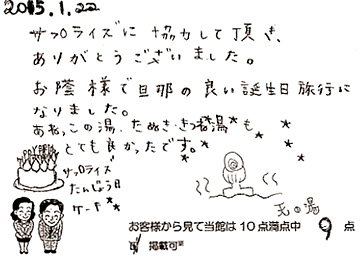 2015.1.22
サプライズに 協力して頂き、
ありがとうございました。
お陰様で旦那の良い誕生日旅行に
なりました。
あねっこの湯、たぬき・きつね湯も
とても良かったです。
サプライズ
たんじょう日
ケーキ
天の湯
お客様から見て当館は10点満点中 9 点
掲載可